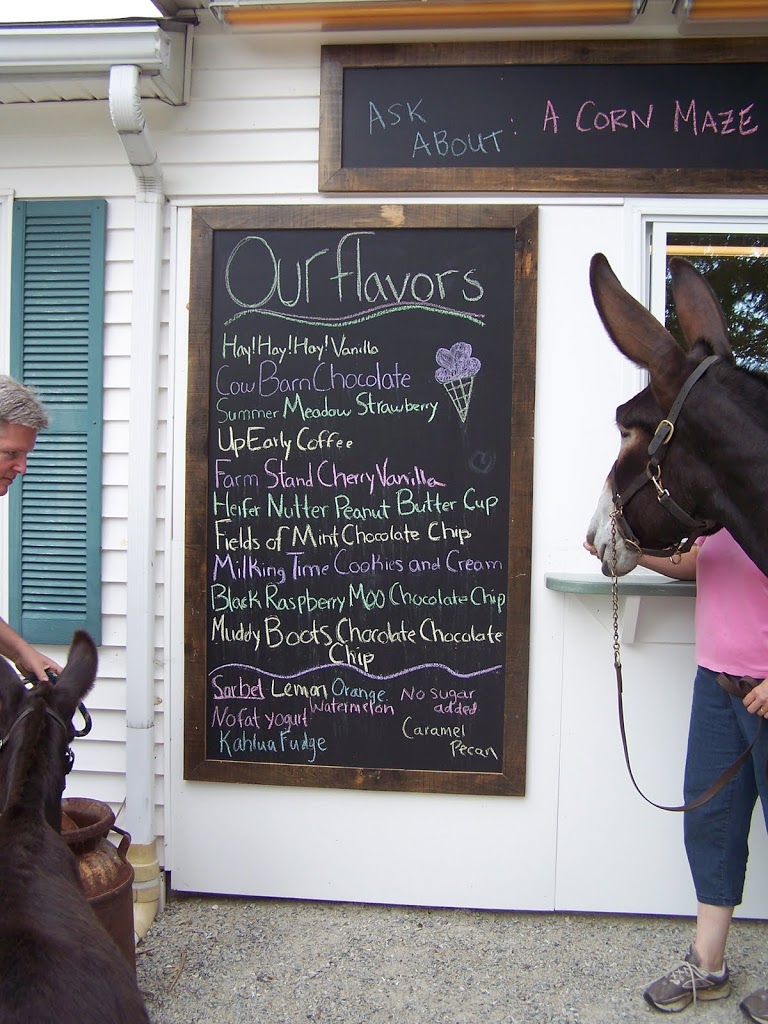 ASK ABOUT: A CORN MAZE
Our flavors
Hay!Hay!Hay! Vanilla
Cow Barn Chocolate
Summer Meadow Strawberry
Up Early Coffee
Farm Stand Cherry Vanilla
Heifer Nutter Peanut Butter Cup
Fields of Mint Chocolate Chip
Milking Time Cookies and Cream
Black Raspberry Moo Chocolate Chip
Muddy Boots Chocolate Chocolate
Chip
Sorbet Lemon Orange
Watermelon
No fat yogurt
Kahlua Fudge
No sugar
added
Caramel
Pecan